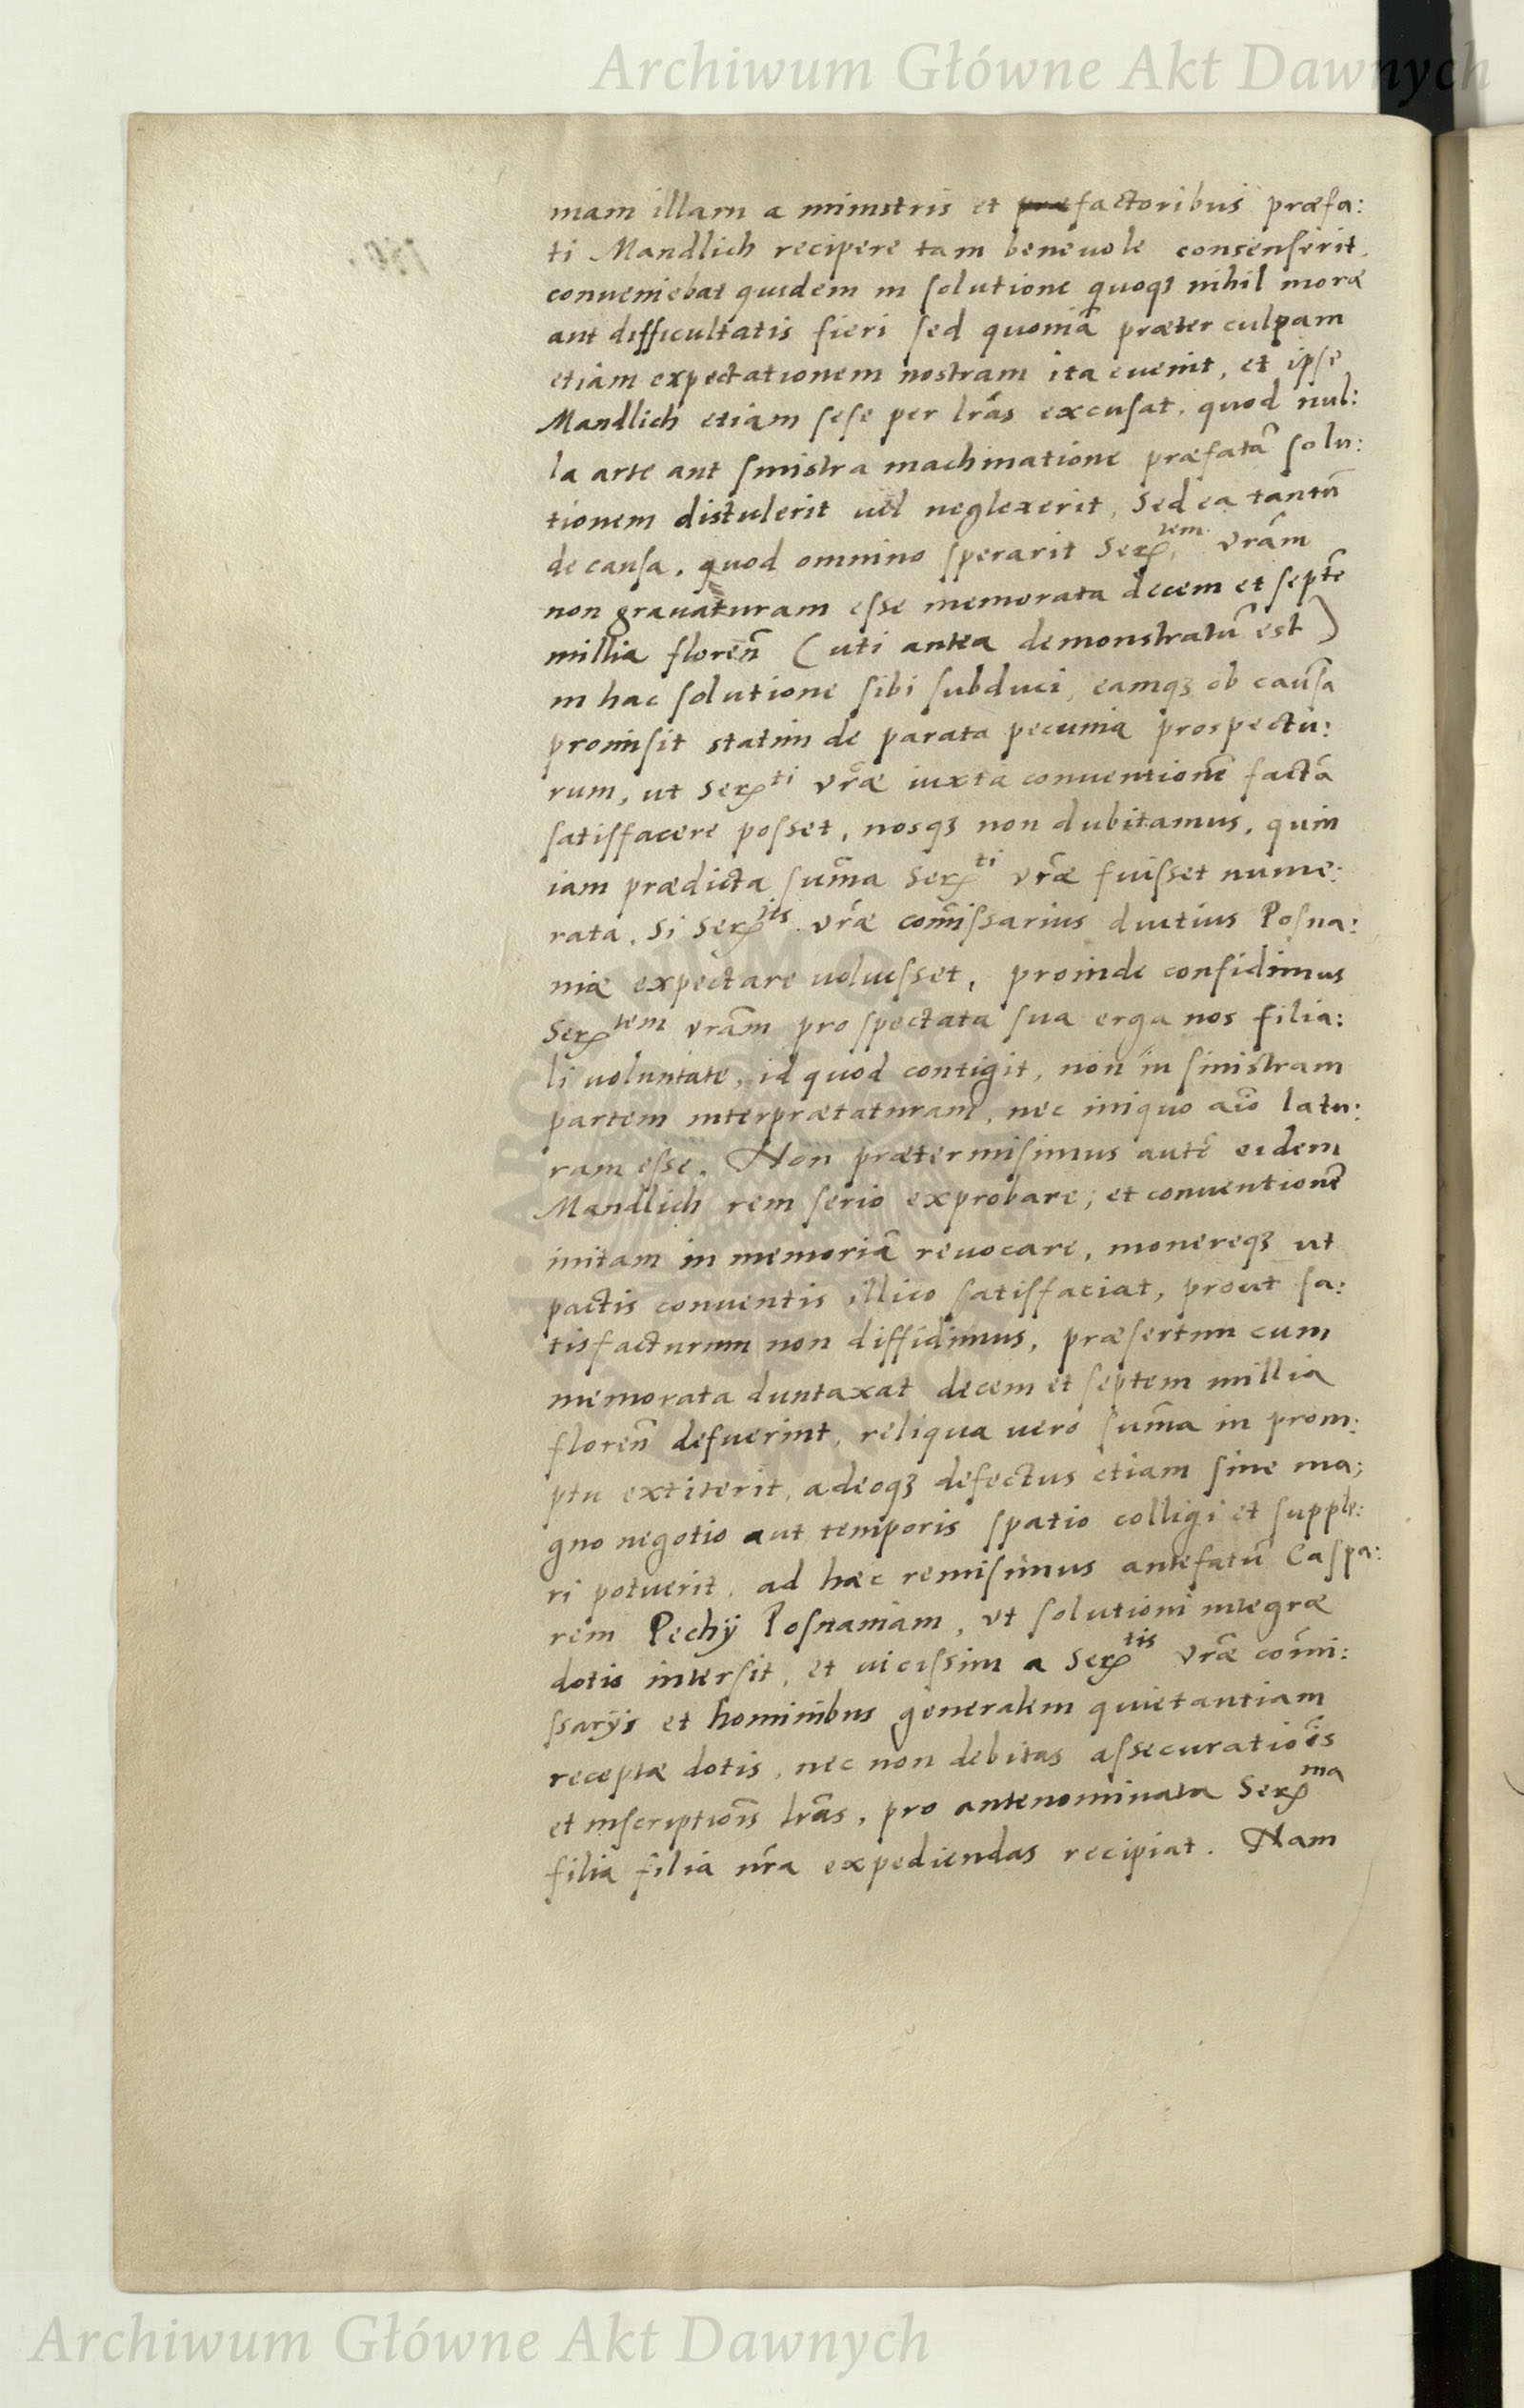 Archiwum Główne Akt Dawnych
mam illam a ministris et factoribus præfa:
ti Mandlich recipere tam beneuole consenserit,
conueniebat quidem in solutione quoqꝫ nihil moræ
aut difficultatis fieri sed quoniã præter culpam
etiam expectationem nostram ita euenit, et ipse
Mandlich etiam sese per lr̃as excusat, quod nul:
la arte aut sinistra machinatione præfatã solu:
tionem distulerit uel neglexerit, sed ea tantũ
de causa, quod omnino sperarit Serᵗᵉᵐ vr̃am
non grauaturam esse memorata decem et septẽ
millia floreñ (uti antea demonstratũ est)
in hac solutione sibi subduci, eamqꝫ ob causã
promisit statim de parata pecunia prospectu:
rum, ut Serᵗⁱ vr̃æ iuxta conuentionẽ factã
satisfacere posset, nosqꝫ non dubitamus, quin
iam prædicta sum̃a Serᵗⁱ vr̃æ fuisset nume:
rata, si Serᵗⁱˢ vr̃æ com̃issarius diutius Posna:
niæ expectare uoluisset, proinde confidimus
Serᵗᵉᵐ vr̃am pro spectata sua erga nos filia:
li uoluntate, id quod contigit, non in sinistram
partem interprætaturam, nec iniquo aĩo latu:
ram esse. Non prætermisimus autẽ eidem
Mandlich rem serio exprobare, et conuentionẽ
initam in memoriã reuocare, monereqꝫ ut
pactis conuentis illico satisfaciat, prout sa:
tisfacturum non diffidimus, præsertim cum
memorata duntaxat decem et septem millia
floreñ defuerint, reliqua uero sum̃a in prom:
ptu extiterit, adeoqꝫ defectus etiam sine ma:
gno negotio aut temporis spatio colligi et supple:
ri potuerit, ad hæc remisimus antefatũ Caspa:
rem Pechÿ Posnaniam, vt solutioni integræ
dotis intersit, et uicissim a Serᵗⁱˢ vr̃æ com̃i:
ssarÿs et hominibus generalem quietantiam
receptæ dotis, nec non debitas assecuratiõis
et inscriptiõis lr̃as, pro antenominata Serᵐᵃ
filia filia nr̃a expediendas recipiat. Nam
Archiwum Główne Akt Dawnych